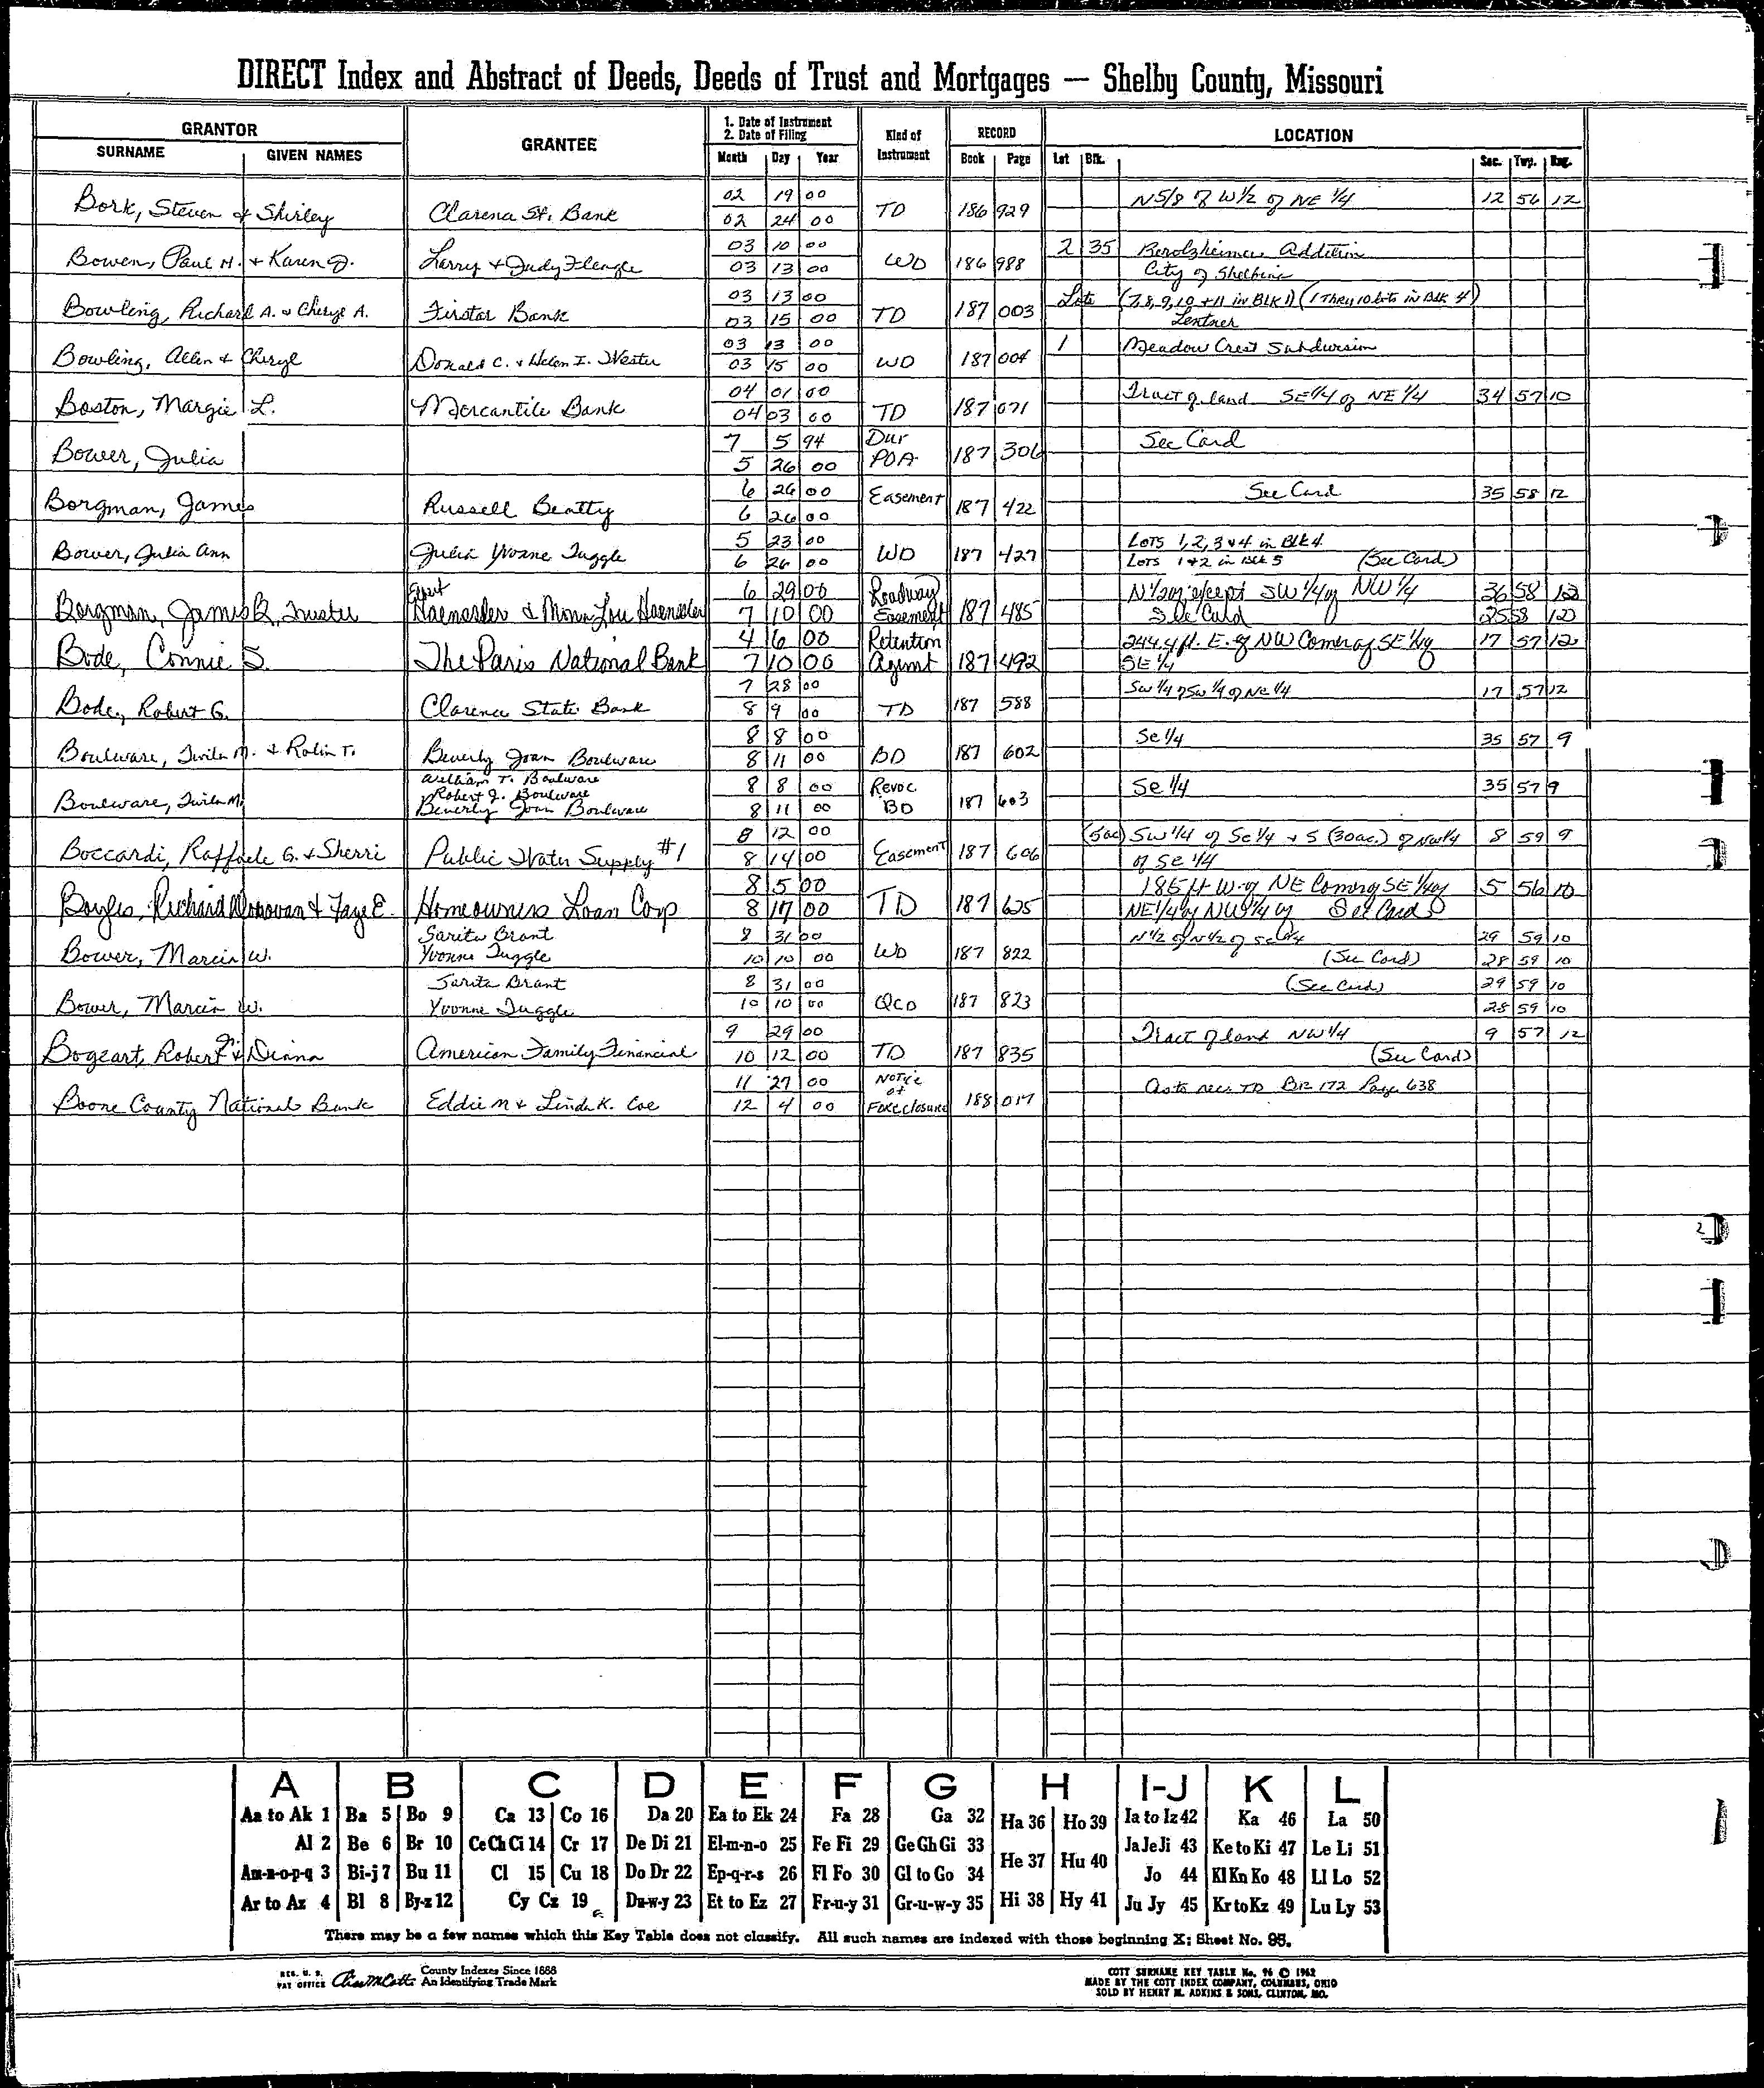 DIRECT Index and Abstract of Deeds, Deeds of Trust and Mortgages — Shelby County, Missouri
GRANTOR GRANTEE 1. Date of Instrument 2. Date of Filing Kind of Instrument RECORD LOCATION
SURNAME GIVEN NAMES Month Day Year Book Page Lot Blk. Sec. Twp. Rng.
02 19 00 N5/8 of W1/2 of NE 1/4 12 56 12
Bork, Steven & Shirley Clarence St. Bank 02 24 00 TD 186 929
03 10 00 2 35 Berolzheimer Addition
Bowen, Paul H. + Karen J. Larry + Judy 03 13 00 WD 186 988 City of Shelbina
03 13 00 Lots (7,8,9,10 +11 in BLK 1) (1 Thru 10 lots in Blk 4)
Bowling, Richard A. & Cheryl A. Firstar Bank 03 15 00 TD 187 003 Lentner
03 13 00 1 Meadow Crest Subdivision
Bowling, Allen & Cheryl Donald C. & Helen I. Wester 03 15 00 WD 187 004
04 01 00 Tract of land SE1/4 of NE 1/4 34 57 10
Boston, Margie L. Mercantile Bank 04 03 00 TD 187 071
7 5 94 Dur See Card
Bower, Julia 5 26 00 POA 187 306
6 26 00 Easement See Card 35 58 12
Borgman, James Russell Beatty 6 26 00 187 422
5 23 00 Lots 1, 2, 3 & 4 in Blk 4
Bower, Julia Ann Julia Yvonne Tuggle 6 26 00 WD 187 427 Lots 1+2 in Blk 5 (See Card)
6 29 00 Roadway N1/2 of except SW 1/4 of NW 1/4 36 58 12
Borgman, James R, Trustee & Mona Lou 7 10 00 Easement 187 485 See Card 25 58 12
4 6 00 Retention 244.4 ft. E. of NW Corner of SE 1/4 of 17 57 12
Bode, Connie S. The Paris National Bank 7 10 00 Agmt 187 492 SE 1/4
7 28 00 SW 1/4 of SW 1/4 of NE 1/4 17 57 12
Bode, Robert G. Clarence State Bank 8 9 00 TD 187 588
8 8 00 SE 1/4 35 57 9
Boulware, Twila M. & Robin T. Beverly Joan Boulware 8 11 00 BD 187 602
William T. Boulware
Robert J. Boulware 8 8 00 Revoc SE 1/4 35 57 9
Boulware, Twila M. Beverly Joan Boulware 8 11 00 BD 187 603
8 12 00 (5ac) SW 1/4 of SE 1/4 + S (30ac.) of NW1/4 8 59 9
Boccardi, Raffaele G. & Sherri Public Water Supply #1 8 14 00 Easement 187 606 of SE 1/4
8 5 00 185 ft W. of NE Corner of SE 1/4 of 5 56 10
Boyles, Richard Donovan & Faye E. Homeowners Loan Corp 8 17 00 TD 187 625 NE 1/4 of NW 1/4 of See Card
Sarita Brant 8 31 00 N1/2 of N1/2 of SE1/4 29 59 10
Bower, Marcia W. Yvonne Tuggle 10 10 00 WD 187 822 (See Card) 28 59 10
Sarita Brant 8 31 00 (See Card) 29 59 10
Bower, Marcia W. Yvonne Tuggle 10 10 00 QCD 187 823 28 59 10
9 29 00 Tract of land NW 1/4 9 57 12
Bogeart, Robert & Diana American Family Financial 10 12 00 TD 187 835 (See Card)
11 27 00 Notice of As to rec. TD BK 172 Page 638
Boone County National Bank Eddie M & Linda K. Coe 12 4 00 Foreclosure 188 017
2
A B C D E F G H I-J K L
Aa to Ak 1 Ba 5 Bo 9 Ca 13 Co 16 Da 20 Ea to Ek 24 Fa 28 Ga 32 Ha 36 Ho 39 Ia to Iz 42 Ka 46 La 50
Al 2 Be 6 Br 10 Ce Ch Ci 14 Cr 17 De Di 21 El-m-n-o 25 Fe Fi 29 Ge Gh Gi 33 He 37 Hu 40 Ja Je Ji 43 Ke to Ki 47 Le Li 51
Am-n-o-p-q 3 Bi-j 7 Bu 11 Cl 15 Cu 18 Do Dr 22 Ep-q-r-s 26 Fl Fo 30 Gl to Go 34 Jo 44 Kl Kn Ko 48 Ll Lo 52
Ar to Az 4 Bl 8 By-z 12 Cy Cz 19 Du-w-y 23 Et to Ez 27 Fr-u-y 31 Gr-u-w-y 35 Hi 38 Hy 41 Ju Jy 45 Kr to Kz 49 Lu Ly 53
There may be a few names which this Key Table does not classify. All such names are indexed with those beginning X; Sheet No. 95.
REG. U. S. PAT OFFICE County Indexes Since 1888
An Identifying Trade Mark
COTT SURNAME KEY TABLE No. 96 © 1962
MADE BY THE COTT INDEX COMPANY, COLUMBUS, OHIO
SOLD BY HENRY M. ADKINS & SONS, CLINTON, MO.